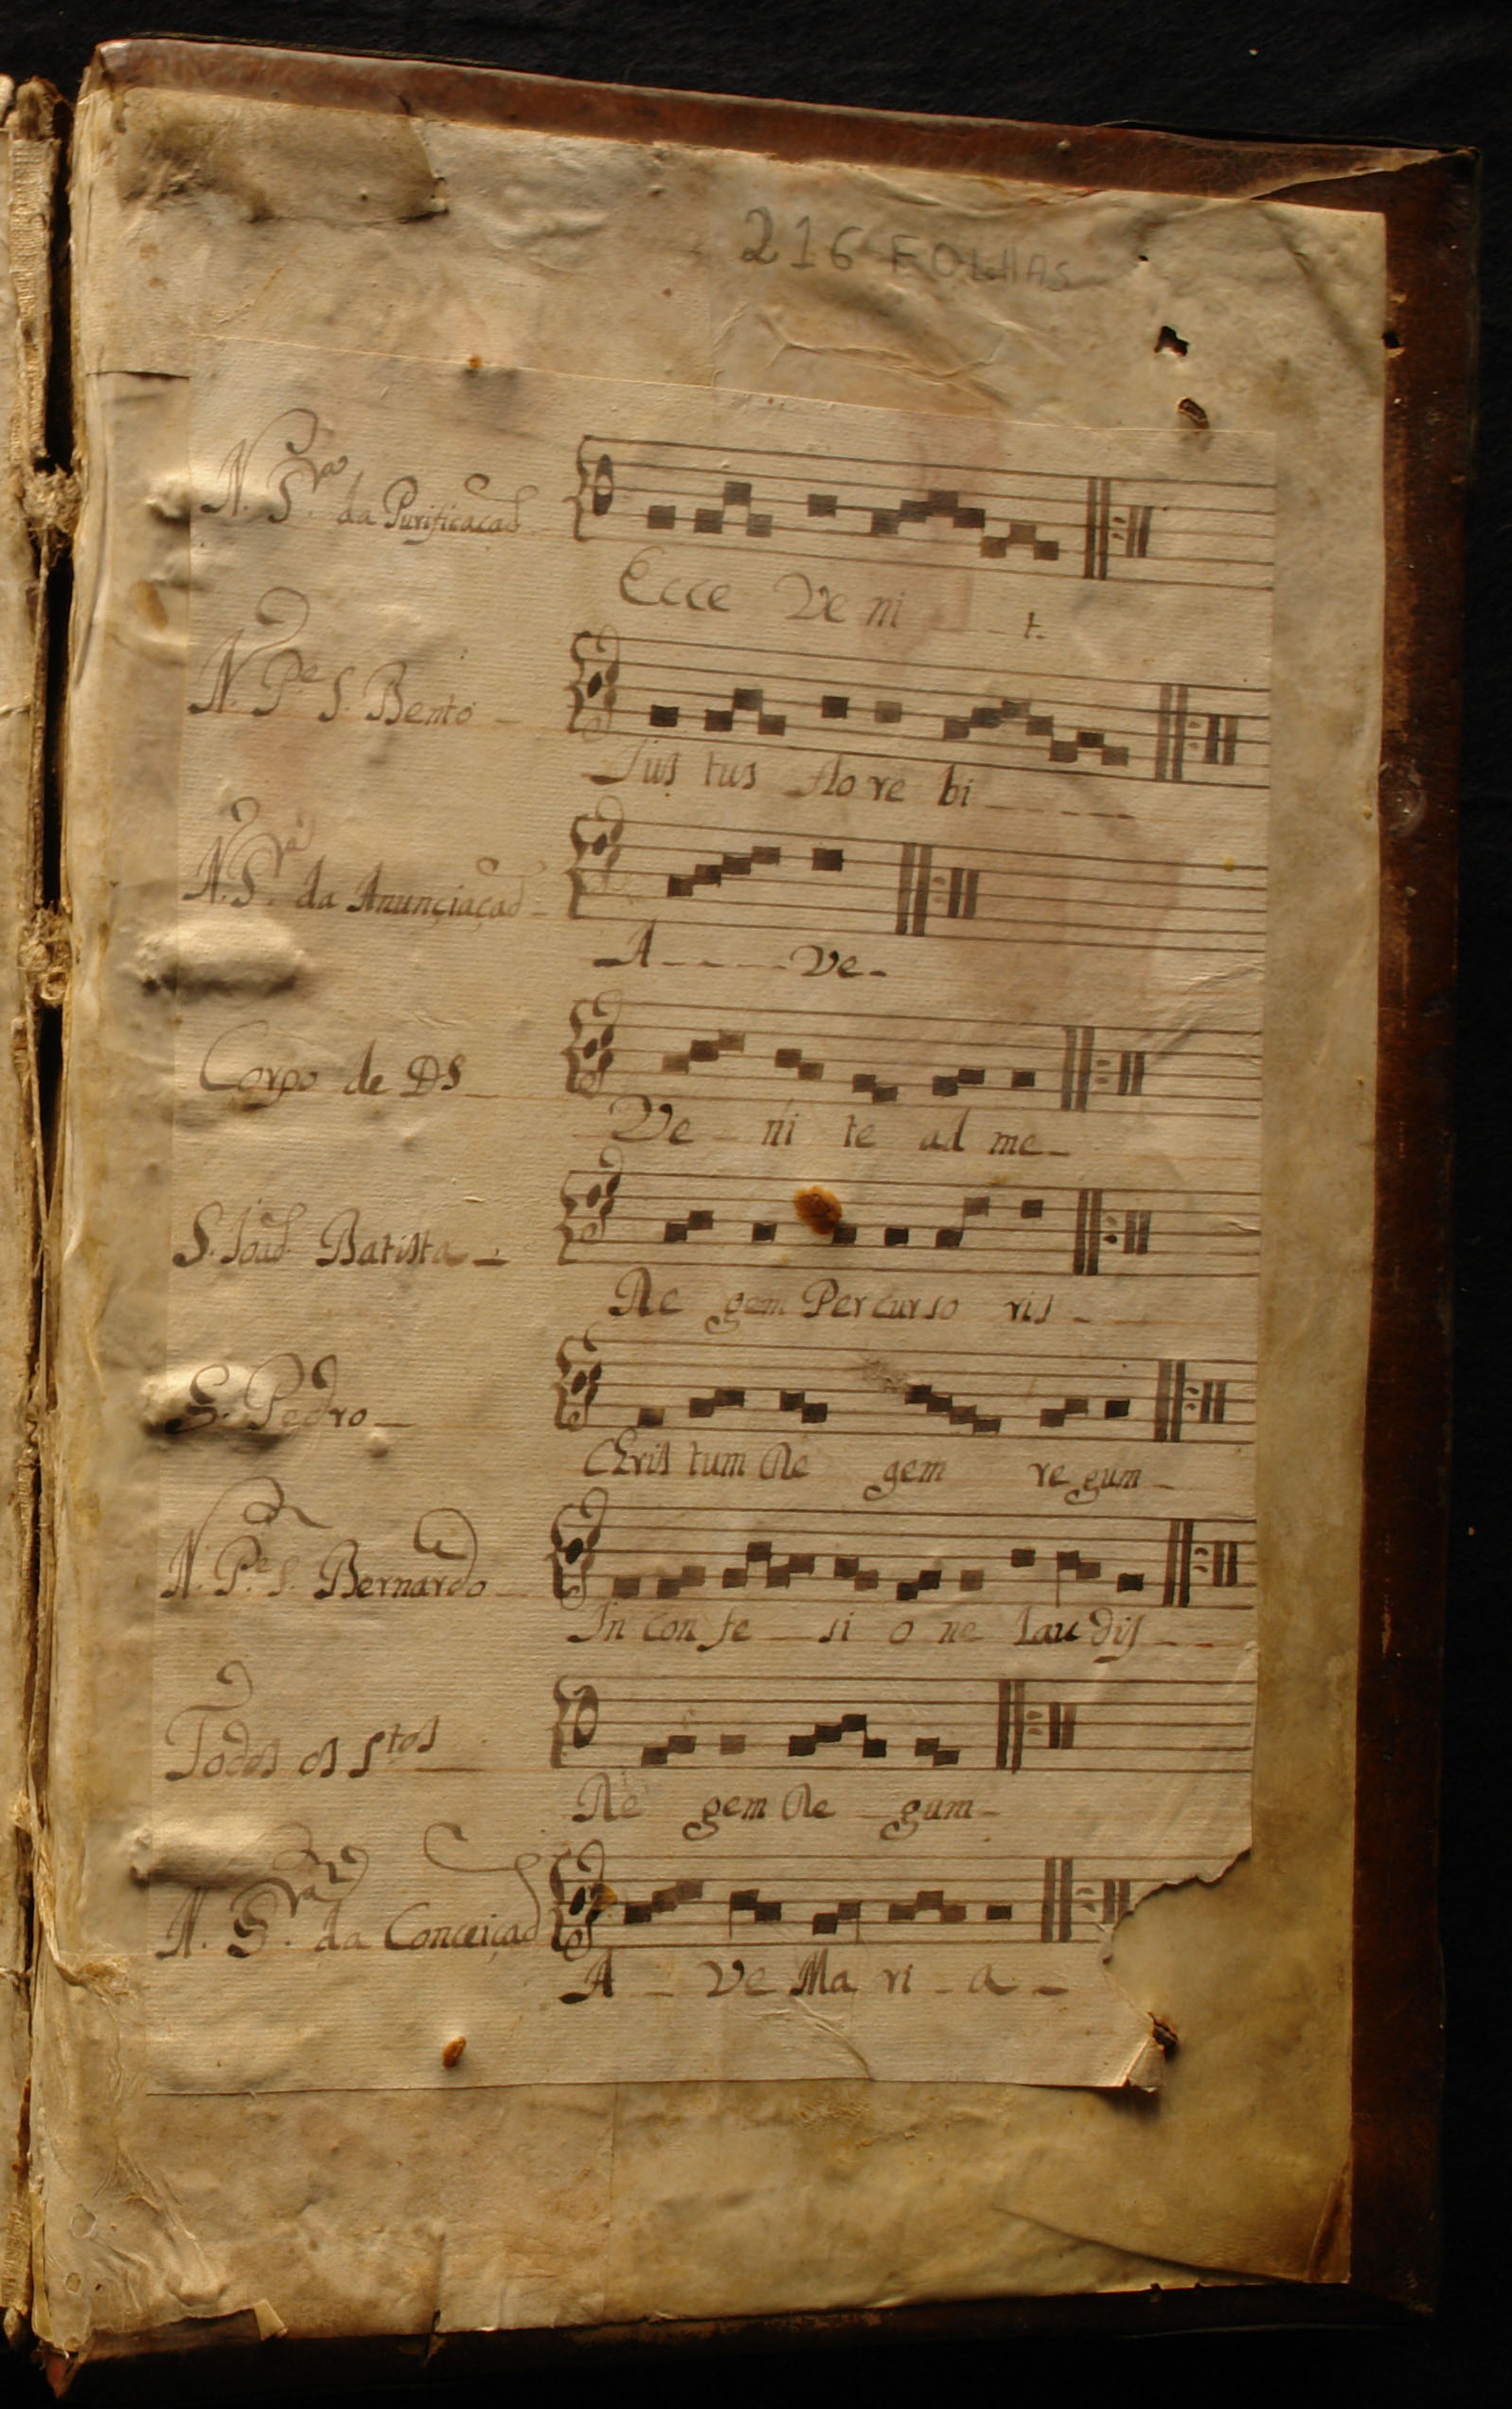 216 FOLHAS
N. Sra. da Purificaçaõ
Ecce Ve ni - - - t.
N. Pe S. Bento -
Jus tus flo re bi - - - - -
N. Sra. da Anunçiaçaõ -
A - - - - ve -
Corpo de DS -
Ve - ni te ad me -
S. Joaõ Batista -
Re gem Per curso ris - -
S. Pedro -
Chris tum Re gem re gum -
N. Pe. S. Bernardo -
In con fe - si o ne lau dis - -
Todos os Stos -
Re gem Re - gum -
N. Sra. da Conceiçaõ
A - ve Ma ri - a -